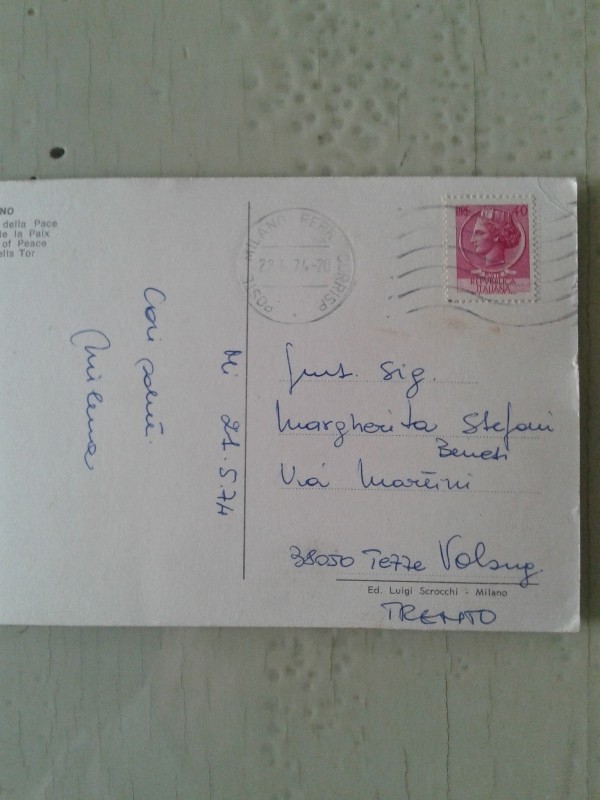 NO
della Pace
e la Paix
of Peace
ella Tor
MILANO FERR. CORRISP
22 5 74-20
POSTE
40
REPVBBLICA
ITALIANA
Cari saluti
Milena
Mi 21.5.74
Gent. Sig.
Margherita Stefani
Benesi
Via Martini
38050 Tezze Valsug.
Ed. Luigi Scrocchi - Milano
TRENTO